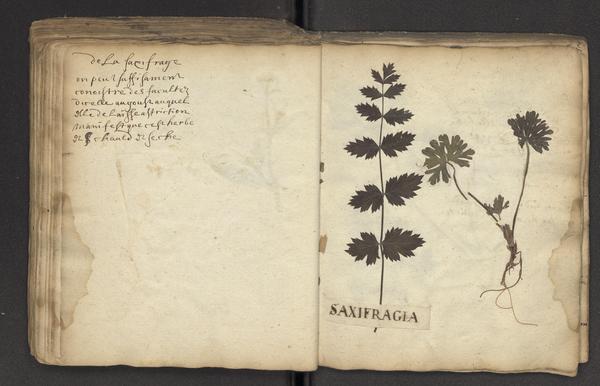 de La saxifrage
on peut suffisament
conoistre des facultez
d'icelle au goust auquel
elle delaisse astriction
manifest que cest herbe
est chaulde et seche
SAXIFRAGIA